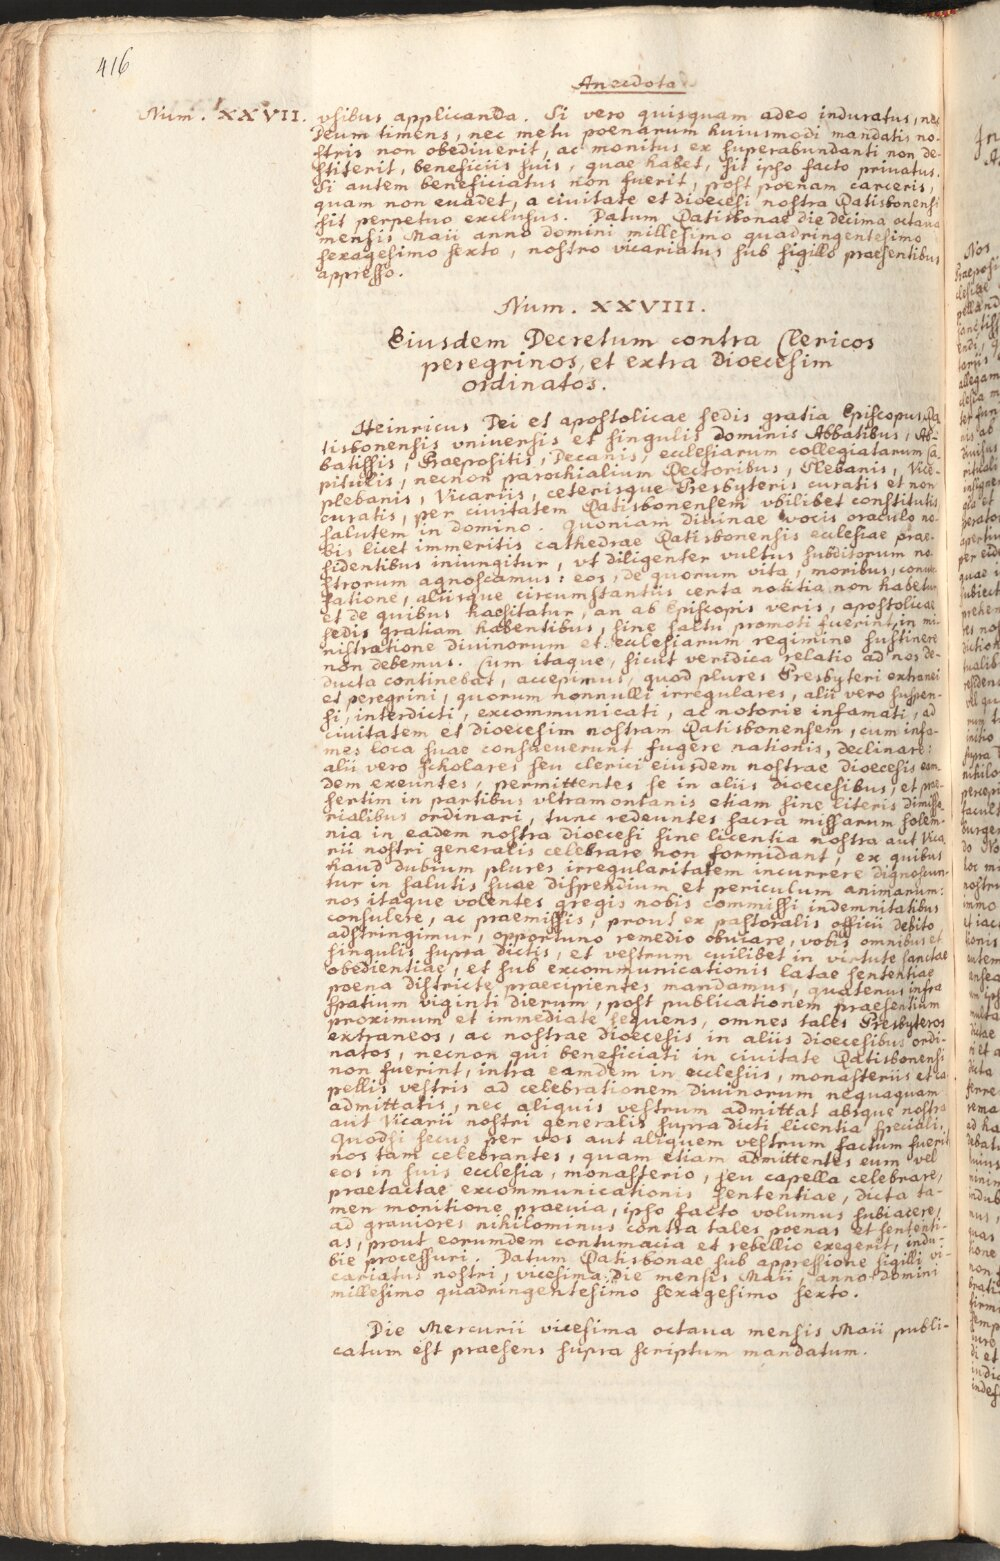 416
Anecdota
Num. XXVII. vsibus applicanda. Si vero quisquam adeo induratus, nec
Deum timens, nec metu poenarum huiusmodi mandatis no-
stris non obediuerit, ac monitus ex superabundanti non de-
stiterit, beneficiis suis, quae habet, sit ipso facto priuatus.
Si autem beneficiatus non fuerit, post poenam carceris,
quam non euadet, a ciuitate et dioecesi nostra Ratisbonensi
sit perpetuo exclusus. Datum Ratisbonae die decima octaua
mensis Maii anno domini millesimo quadringentesimo
sexagesimo sexto, nostro vicariatus sub sigillo praesentibus
appresso.
Num. XXVIII.
Eiusdem Decretum contra Clericos
peregrinos, et extra Dioecesim
ordinatos.
Heinricus Dei et apostolicae sedis gratia Episcopus Ra-
tisbonensis vniuersis et singulis dominis Abbatibus, Ab-
batissis, Praepositis, Decanis, ecclesiarum collegiatarum Ca-
pitulis, necnon parochialium Rectoribus, Plebanis, Vice-
plebanis, Vicariis, ceterisque Presbyteris curatis et non
curatis, per ciuitatem Ratisbonensem vbilibet constitutis
salutem in domino. Quoniam diuinae vocis oraculo no-
bis licet immeritis cathedrae Ratisbonensis ecclesiae prae-
sidentibus iniungitur, vt diligenter vultus subditorum no-
strorum agnoscamus: eos, de quorum vita, moribus, conuer-
satione, aliisque circumstantiis certa notitia non habetur
et de quibus haesitatur, an ab Episcopis veris, apostolicae
sedis gratiam habentibus, sine factu promoti fuerint, in mi-
nistratione diuinorum et ecclesiarum regimine sustinere
non debemus. Cum itaque, sicut veridica relatio ad nos de-
ducta continebat, accepimus, quod plures Presbyteri extranei
et peregrini, quorum nonnulli irregulares, alii vero suspen-
si, interdicti, excommunicati, ac notorie infamati, ad
ciuitatem et dioecesim nostram Ratisbonensem, cum infa-
mes loca suae consueuerunt fugere nationis, declinare:
alii vero scholares seu clerici eiusdem nostrae dioecesis ean-
dem exeuntes, permittentes se in aliis dioecesibus, et prae-
sertim in partibus vltramontanis etiam sine literis dimisso-
rialibus ordinari, tunc redeuntes sacra missarum solem-
nia in eadem nostra dioecesi sine licentia nostra aut Vica-
rii nostri generalis celebrare non formidant, ex quibus
haud dubium plures irregularitatem incurrere dignoscun-
tur in salutis suae dispendium et periculum animarum:
nos itaque volentes gregis nobis commissi indemnitatibus
consulere, ac praemissis, prout ex pastoralis officii debito
adstringimur, opportuno remedio obuiare, vobis omnibus et
singulis supra dictis, et vestrum cuilibet in virtute sanctae
obedientiae, et sub excommunicationis latae sententiae
poena districte praecipientes mandamus, quatenus infra
spatium viginti dierum, post publicationem praesentium
proximum et immediate sequens, omnes tales Presbyteros
extraneos, ac nostrae dioecesis in aliis dioecesibus ordi-
natos, necnon qui beneficiati in ciuitate Ratisbonensi
non fuerint, intra eamdem in ecclesiis, monasteriis et ca-
pellis vestris ad celebrationem diuinorum nequaquam
admittatis, nec aliquis vestrum admittat absque nostra
aut Vicarii nostri generalis supra dicti licentia speciali.
Quodsi secus per vos aut aliquem vestrum factum fuerit
nos tam celebrantes, quam etiam admittentes eum vel
eos in suis ecclesia, monasterio, seu capella celebrare,
praetactae excommunicationis sententiae, dicta ta-
men monitione praeuia, ipso facto volumus subiacere,
ad grauiores nihilominus contra tales poenas et sententi-
as, prout eorumdem contumacia et rebellio exegerit, indu-
bie processuri. Datum Ratisbonae sub appressione sigilli vi-
cariatus nostri, vicesima die mensis Maii, anno Domini
millesimo quadringentesimo sexagesimo sexto.
Die Mercurii vicesima octaua mensis Maii publi-
catum est praesens supra scriptum mandatum.